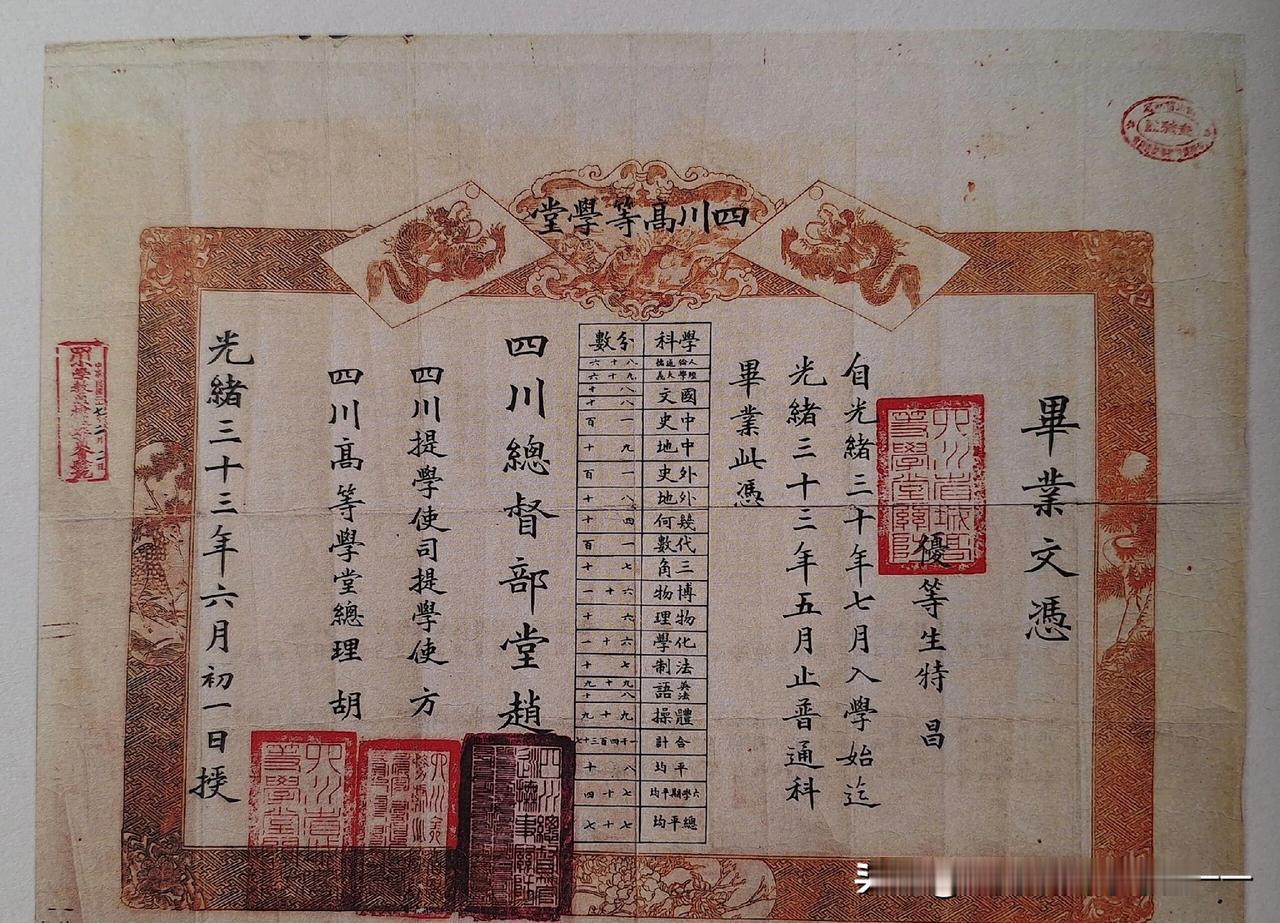 四川高等學堂
畢業文憑
優等生特昌
自光緒三十年七月入學始迄
光緒三十三年五月止普通科
畢業此憑
學科 分數
人倫道德 八十六
經學大義 九十六
國文 八十 八十
中史 一百
中地 九十
外史 一百
外地 八十
幾何 四十
代數 一百
三角 七十
博物 六十一
物理 六十
化學 六十一
法制 七十
英法語 九十九 八十
體操 九十九
合計 一千四百三十七
平均 八十
六學期平均 七十四
總平均 七十七
四川總督部堂趙
四川提學使司提學使方
四川高等學堂總理胡
光緒三十三年六月初一日授
四川省城高等學堂關防